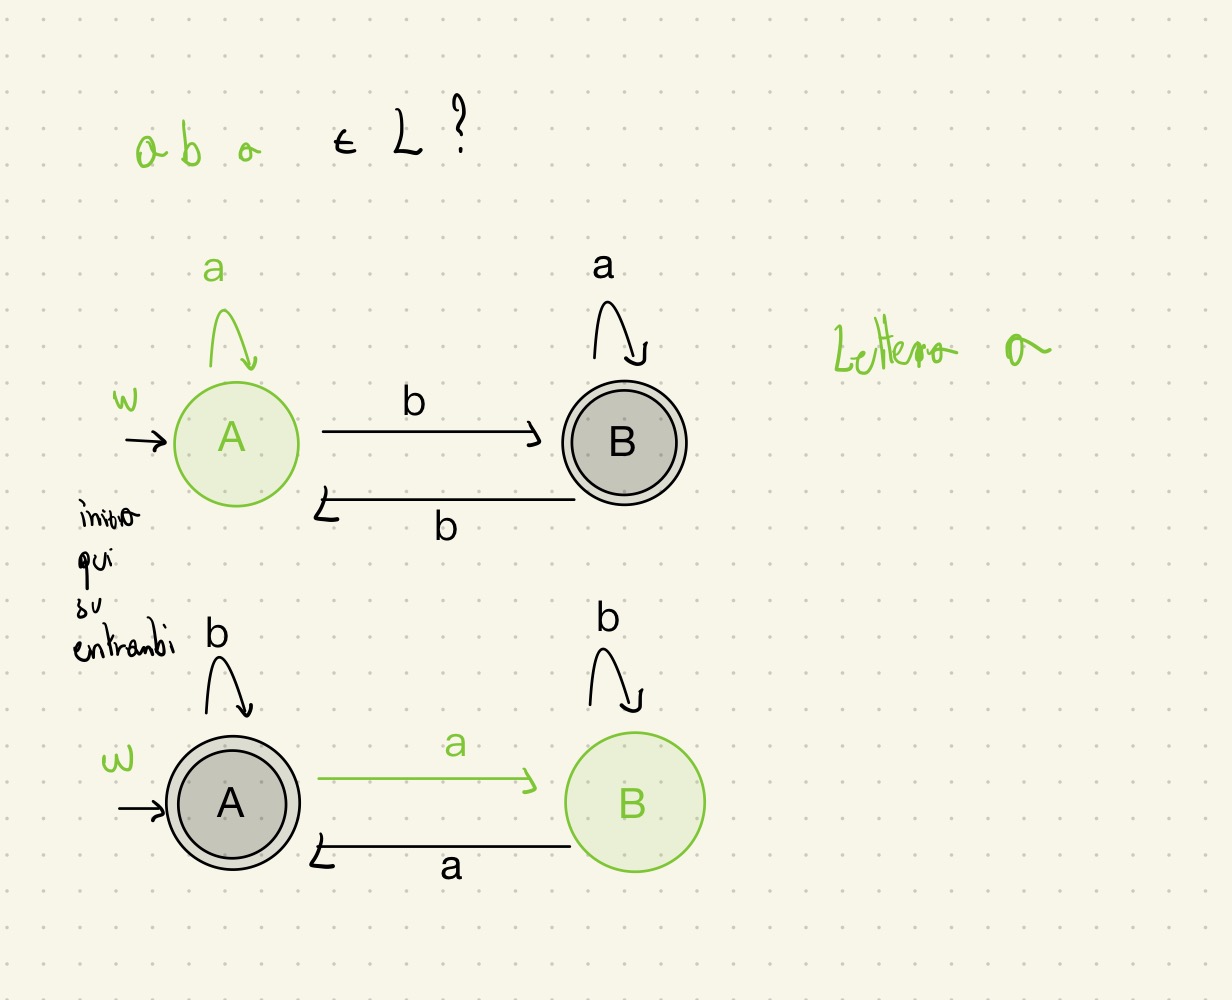 a b a ϵ L ?
a
a
Lettera a
w
b
A
B
b
inizia
qui
su
entrambi
b
b
w
a
A
B
a